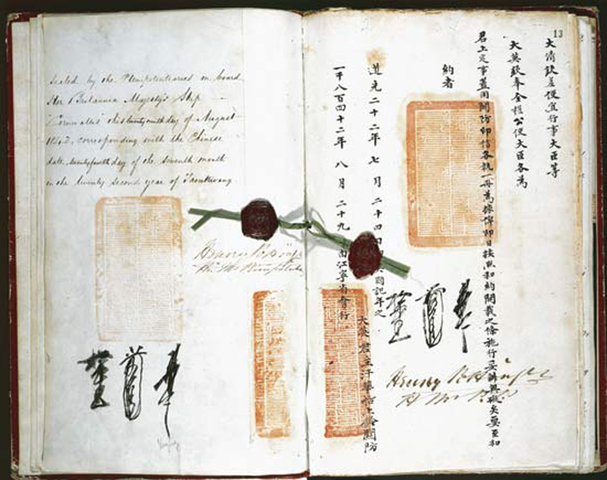 Sealed by the Plenipotentiaries on board
Her Britannic Majesty's Ship
Cornwallis this twenty ninth day of August
1842, corresponding with the Chinese
date, twenty fourth day of the seventh month
in the twenty second year of Taoukwang
Henry Pottinger
13
大清欽差便宜行事大臣等
大英欽奉全權公使大臣各為
君上定事蓋用關防印信各執一冊為據俾即日按照和約開載之條施行妥辦無礙矣要至和
約者
道光二十二年七月二十四 國記年之
一千八百四十二年八月二十九 由江寧省會行
大英君主汗華船上鈐關防
Henry Pottinger